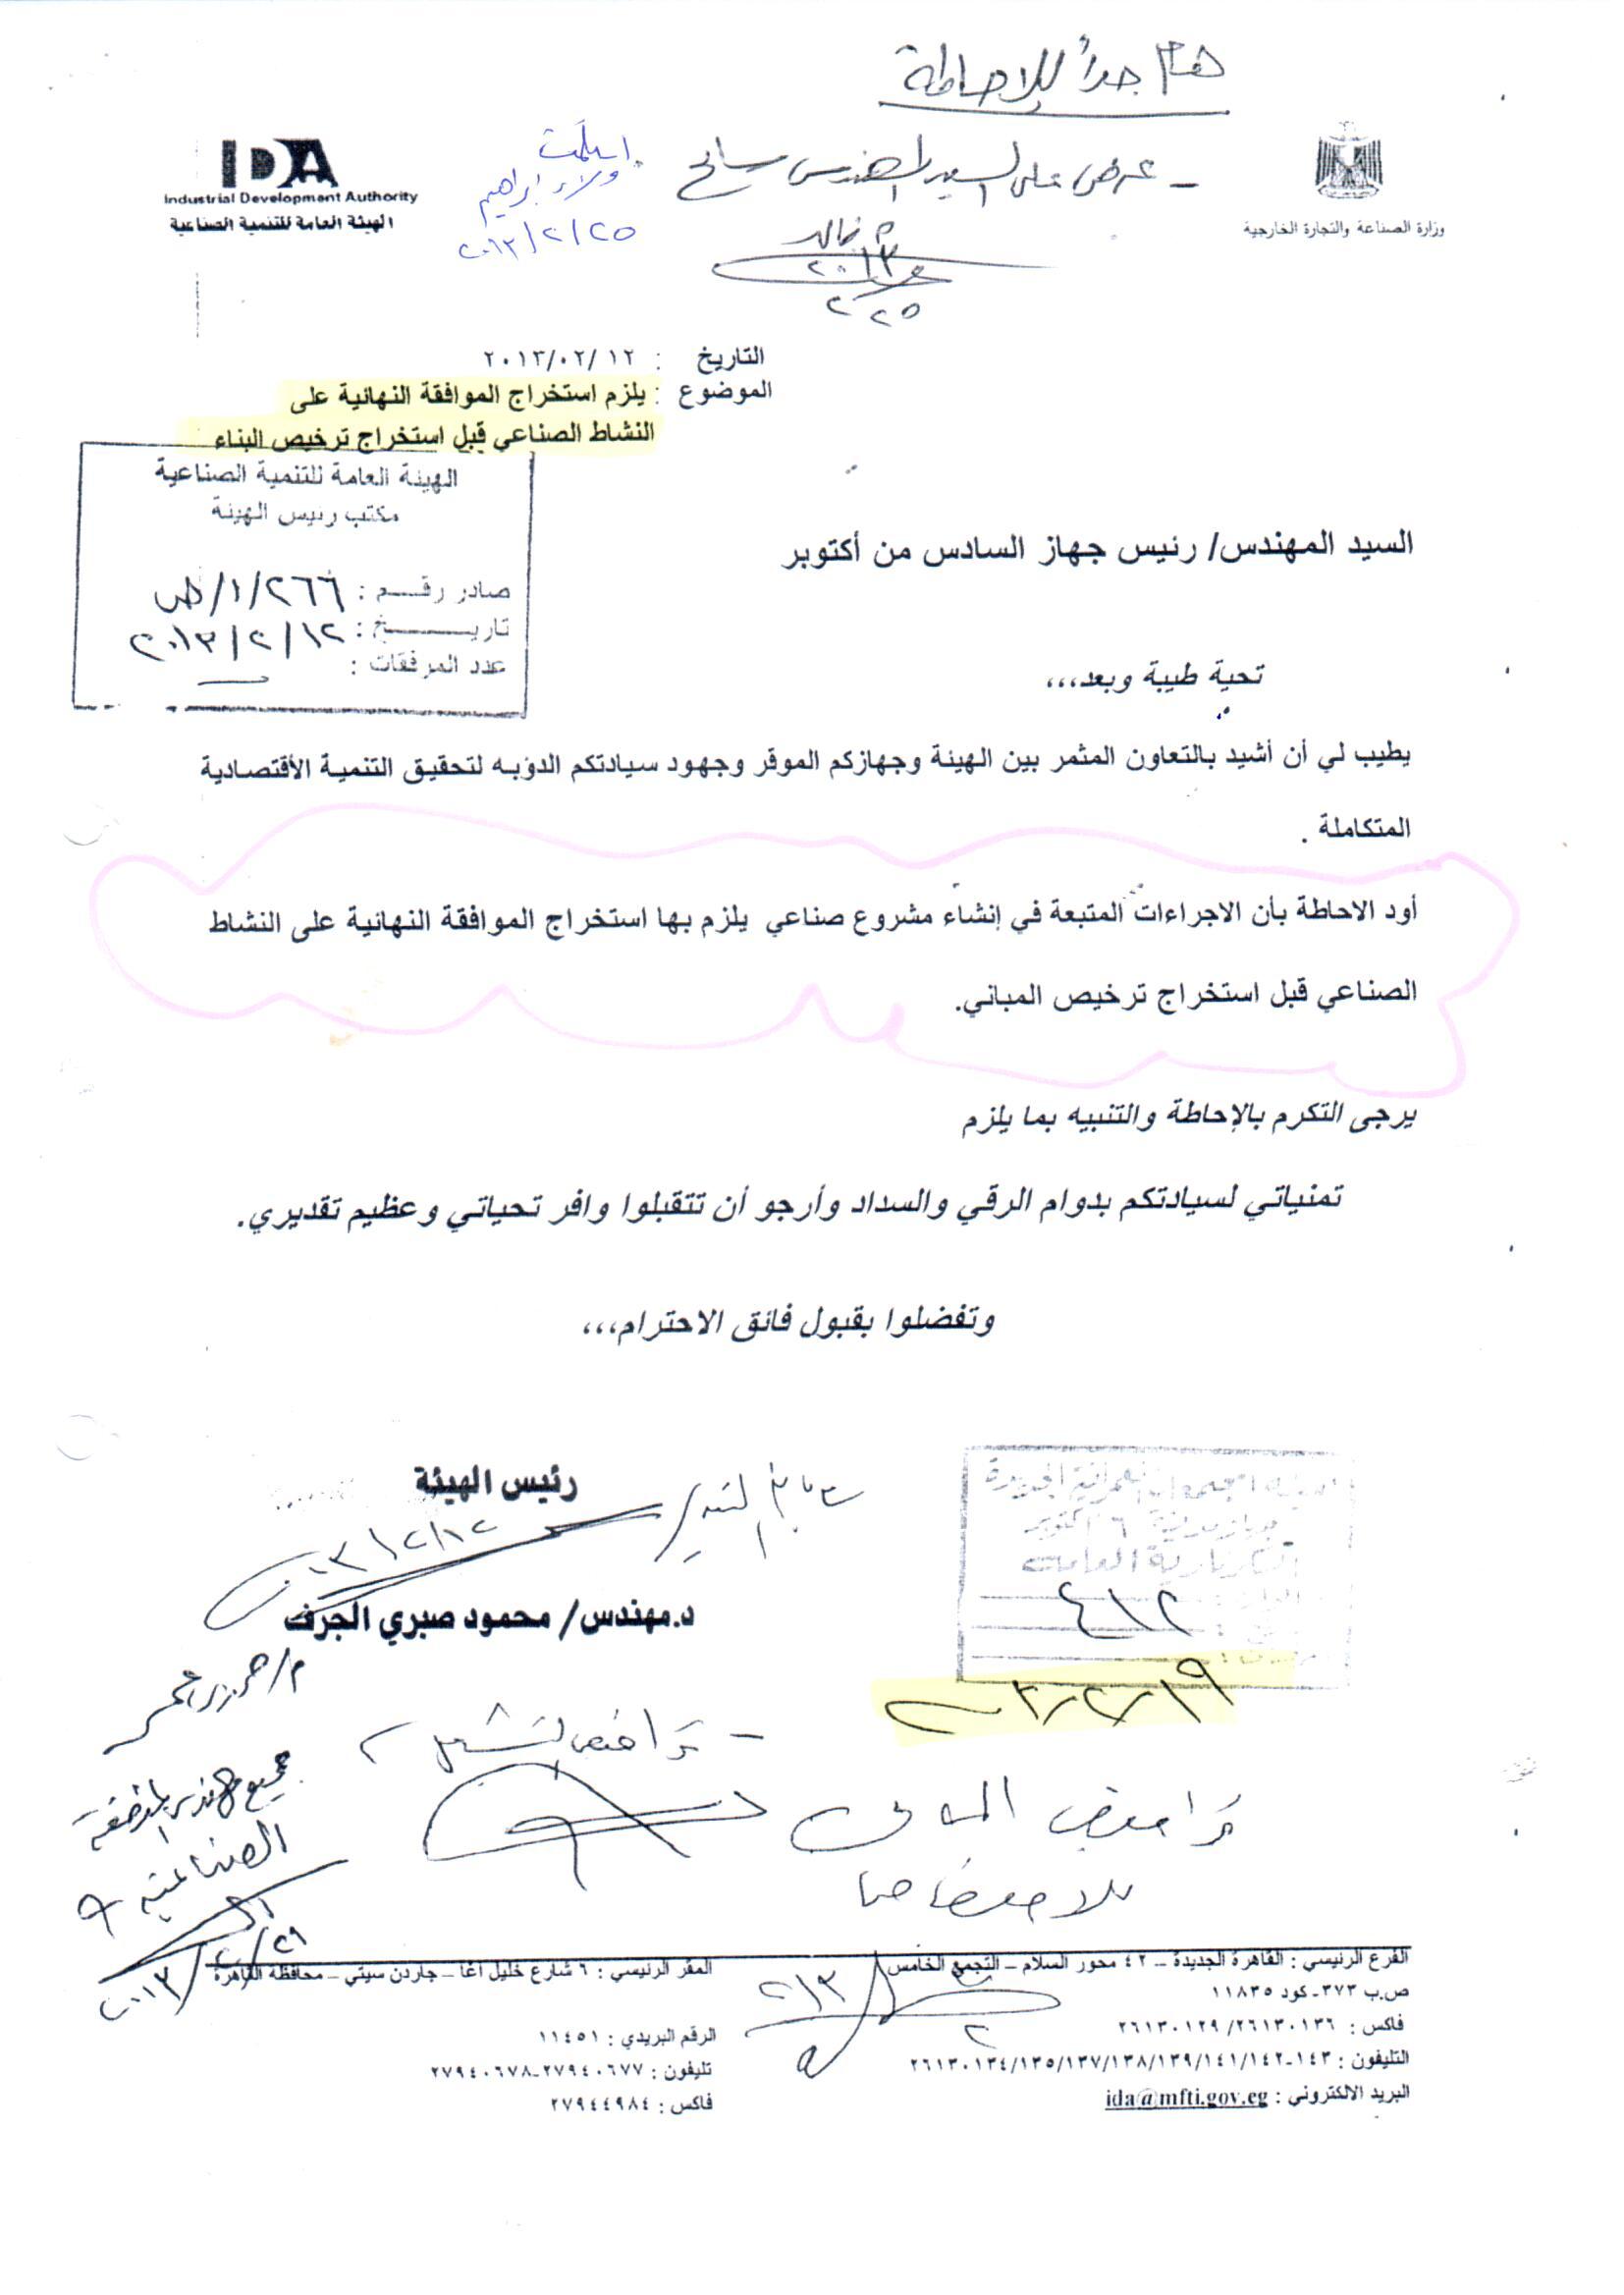 هام جداً للإحاطة
IDA
Industrial Development Authority
الهيئة العامة للتنمية الصناعية
وزارة الصناعة والتجارة الخارجية
ـ عرض على السيد المهندس سامح
استلمت
ولاء ابراهيم
٢٠١٣/٢/٢٥
٢٠١٣
٢ ٢٥
التاريخ : ٢٠١٣/٠٢/١٢
الموضوع : يلزم استخراج الموافقة النهائية على
النشاط الصناعي قبل استخراج ترخيص البناء
الهيئة العامة للتنمية الصناعية
مكتب رئيس الهيئة
صادر رقم : ١/٢٦٦/ص
تاريخ : ٢٠١٣/٢/١٢
عدد المرفقات :
السيد المهندس/ رئيس جهاز السادس من أكتوبر
تحية طيبة وبعد،،،
يطيب لي أن أشيد بالتعاون المثمر بين الهيئة وجهازكم الموقر وجهود سيادتكم الدؤبه لتحقيق التنمية الأقتصادية
المتكاملة .
أود الاحاطة بأن الاجراءات المتبعة في إنشاء مشروع صناعي يلزم بها استخراج الموافقة النهائية على النشاط
الصناعي قبل استخراج ترخيص المباني.
يرجى التكرم بالإحاطة والتنبيه بما يلزم
تمنياتي لسيادتكم بدوام الرقي والسداد وأرجو أن تتقبلوا وافر تحياتي وعظيم تقديري.
وتفضلوا بقبول فائق الاحترام،،،
رئيس الهيئة
د.مهندس/ محمود صبري الجرف
هيئة المجتمعات العمرانية الجديدة
جهاز مدينة ٦ أكتوبر
السكرتارية العامة
٤١٢
ـ تراخيص تشغيل
تراخيص المباني
للاختصاص
جميع مهندسي المنطقة
الصناعية
الفرع الرئيسي : القاهرة الجديدة ــ ٤٢ محور السلام ــ التجمع الخامس
ص.ب ٣٧٣ـ كود ١١٨٣٥
فاكس : ٢٦١٣٠١٣٦/ ٢٦١٣٠١٢٩
التليفون : ١٤٣-١٤٢/١٤١/١٣٩/١٣٨/١٣٧/١٣٥/٢٦١٣٠١٣٤
البريد الالكتروني : ida@mfti.gov.eg
المقر الرئيسي : ٦ شارع خليل أغا ــ جاردن سيتي ــ محافظة القاهرة
الرقم البريدي : ١١٤٥١
تليفون : ٢٧٩٤٠٦٧٧-٢٧٩٤٠٦٧٨
فاكس : ٢٧٩٤٤٩٨٤